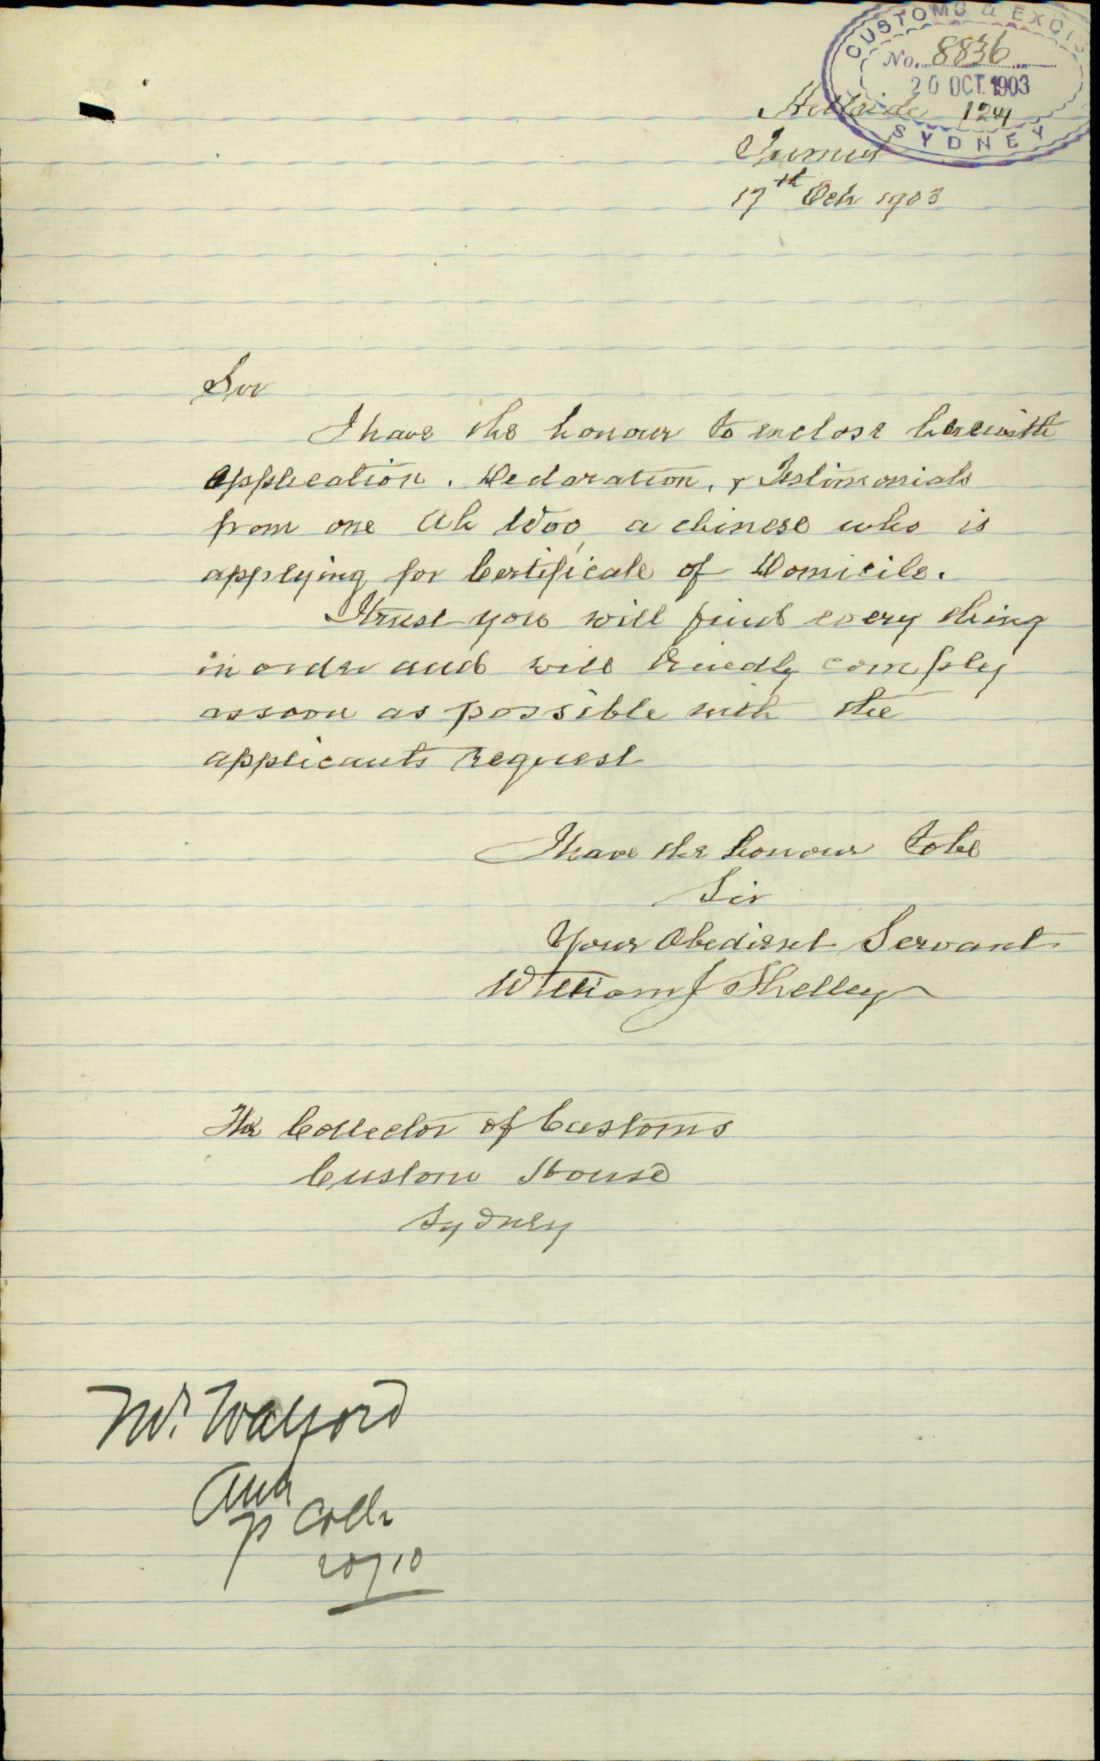 CUSTOMS & EXCIS
No. 8836
20 OCT. 1903
124
SYDNEY
Tumut
17th Oct 1903
Sir
I have the honour to enclose herewith
application, Declaration, & Testimonials
from one Ah Woo, a chinese who is
applying for Certificate of Domicile.
I trust you will find every thing
in order and will kindly comply
as soon as possible with the
applicants request
I have the honour to be
Sir
Your Obedient Servant
William J Shelley
The Collector of Customs
Custom House
Sydney
Mr. Walford
p Collr
20/10